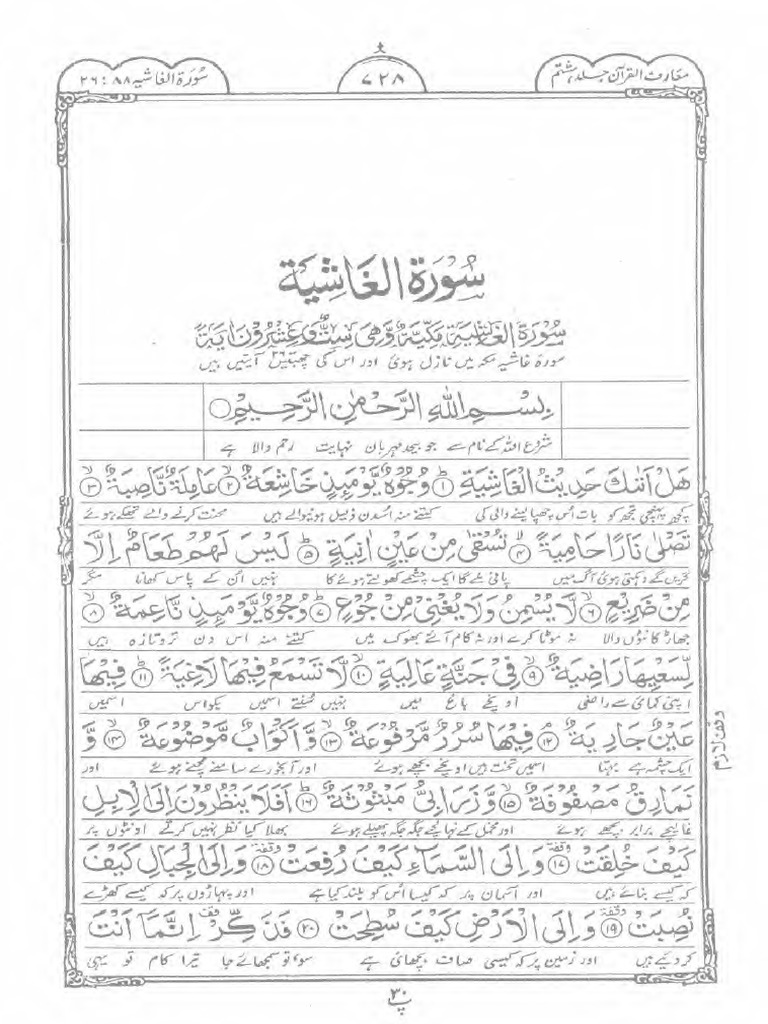 معارف القرآن جلد ہشتم
۷۲۸
سورۃ الغاشیہ ۸۸ : ۲۶
سُوْرَةُ الْغَاشِيَةِ
سُوْرَةُ الْغَاشِيَةِ مَكِّيَّةٌ وَّهِيَ سِتٌّ وَّعِشْرُوْنَ اٰيَةً
سورۃ غاشیہ مکہ میں نازل ہوئی اور اس کی چھبیس ۲۶ آیتیں ہیں
بِسْمِ اللّٰهِ الرَّحْمٰنِ الرَّحِيْمِ
شروع اللہ کے نام سے جو بیحد مہربان نہایت رحم والا ہے
هَلْ اَتٰىكَ حَدِيْثُ الْغَاشِيَةِ ۱ وُجُوْهٌ يَّوْمَئِذٍ خَاشِعَةٌ ۲ عَامِلَةٌ نَّاصِبَةٌ ۳
کچھ پہنچی تجھ کو بات اُس چھپا لینے والی کی کتنے منہ اُس دن ذلیل ہونیوالے ہیں محنت کرنے والے تھکے ہوئے
تَصْلٰى نَارًا حَامِيَةً ۴ تُسْقٰى مِنْ عَيْنٍ اٰنِيَةٍ ۵ لَيْسَ لَهُمْ طَعَامٌ اِلَّا
گریں گے دہکتی ہوئی آگ میں پانی ملے گا ایک چشمے کھولتے ہوئے کا نہیں اُن کے پاس کھانا مگر
مِنْ ضَرِيْعٍ ۶ لَّا يُسْمِنُ وَلَا يُغْنِيْ مِنْ جُوْعٍ ۷ وُجُوْهٌ يَّوْمَئِذٍ نَّاعِمَةٌ ۸
جھاڑ کانٹوں والا نہ موٹا کرے اور نہ کام آئے بھوک میں کتنے منہ اس دن تر و تازہ ہیں
لِّسَعْيِهَا رَاضِيَةٌ ۹ فِيْ جَنَّةٍ عَالِيَةٍ ۱۰ لَّا تَسْمَعُ فِيْهَا لَاغِيَةً ۱۱ فِيْهَا
اپنی کمائی سے راضی اونچے باغ میں نہیں سُنتے اسمیں بکواس اسمیں
عَيْنٌ جَارِيَةٌ ۱۲ فِيْهَا سُرُرٌ مَّرْفُوْعَةٌ ۱۳ وَّاَكْوَابٌ مَّوْضُوْعَةٌ ۱۴ وَّ
ایک چشمہ ہے بہتا اسمیں تخت ہیں اونچے بچھے ہوئے اور آبخورے سامنے چنے ہوئے اور
وقف لازم
نَمَارِقُ مَصْفُوْفَةٌ ۱۵ وَّزَرَابِيُّ مَبْثُوْثَةٌ ۱۶ اَفَلَا يَنْظُرُوْنَ اِلَى الْاِبِلِ
غالیچے برابر بچھے ہوئے اور مخمل کے نہالچے جگہ جگہ پھیلے ہوئے بھلا کیا نظر نہیں کرتے اونٹوں پر
كَيْفَ خُلِقَتْ ۱۷ وَاِلَى السَّمَآءِ كَيْفَ رُفِعَتْ ۱۸ وَاِلَى الْجِبَالِ كَيْفَ
کہ کیسے بنائے ہیں اور آسمان پر کہ کیسا اُس کو بلند کیا ہے اور پہاڑوں پر کہ کیسے کھڑے
نُصِبَتْ ۱۹ وَاِلَى الْاَرْضِ كَيْفَ سُطِحَتْ ۲۰ فَذَكِّرْ اِنَّمَآ اَنْتَ
کر دیے ہیں اور زمین پر کہ کیسی صاف بچھائی ہے سو تو سمجھائے جا تیرا کام تو یہی
۳۰